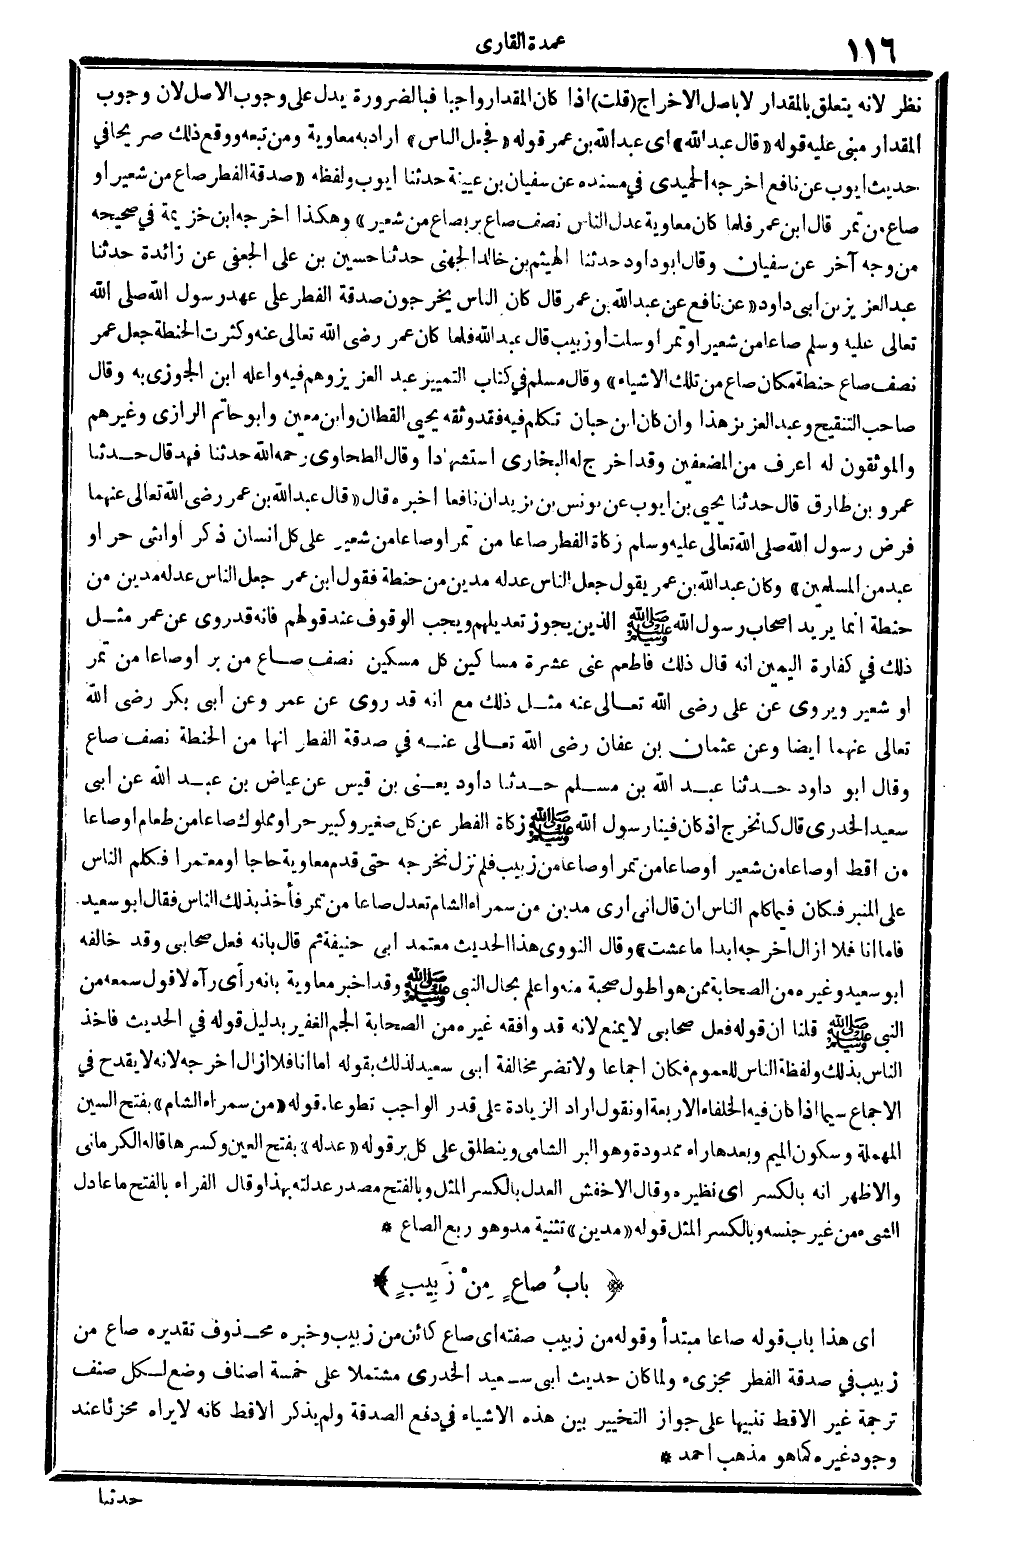 ١١٦
عمدة القارى
نظر لانه يتعلق بالمقدار لا باصل الاخراج (قلت) اذا كان المقدار واجبا فبالضرورة يدل على وجوب الاصل لان وجوب
المقدار مبنى عليه قوله «قال عبد الله» اى عبد الله بن عمر قوله «فجعل الناس» اراد به معاوية ومن تبعه ووقع ذلك صريحا في
حديث ايوب عن نافع اخرجه الحميدى في مسنده عن سفيان بن عيينة حدثنا ايوب ولفظه «صدقة الفطر صاع من شعير او
صاع من تمر قال ابن عمر فلما كان معاوية عدل الناس نصف صاع بر بصاع من شعير» وهكذا اخرجه ابن خزيمة في صحيحه
من وجه آخر عن سفيان وقال ابو داود حدثنا الهيثم بن خالد الجهنى حدثنا حسين بن على الجعفى عن زائدة حدثنا
عبد العزيز بن ابى داود «عن نافع عن عبد الله بن عمر قال كان الناس يخرجون صدقة الفطر على عهد رسول الله صلى الله
تعالى عليه وسلم صاعا من شعير او تمر او سلت او زبيب قال عبد الله فلما كان عمر رضى الله تعالى عنه وكثرت الحنطة جعل عمر
نصف صاع حنطة مكان صاع من تلك الاشياء» وقال مسلم في كتاب التمييز عبد العزيز وهم فيه واعله ابن الجوزى به وقال
صاحب التنقيح وعبد العزيز هذا وان كان ابن حبان تكلم فيه فقد وثقه يحيى القطان وابن معين وابو حاتم الرازى وغيرهم
والموثقون له اعرف من المضعفين وقد اخرج له البخارى استشهادا وقال الطحاوى رحمه الله حدثنا فهد قال حدثنا
عمرو بن طارق قال حدثنا يحيى بن ايوب عن يونس بن يزيد ان نافعا اخبره قال «قال عبد الله بن عمر رضى الله تعالى عنهما
فرض رسول الله صلى الله تعالى عليه وسلم زكاة الفطر صاعا من تمر او صاعا من شعير على كل انسان ذكر او انثى حر او
عبد من المسلمين» وكان عبد الله بن عمر يقول جعل الناس عدله مدين من حنطة فقول ابن عمر جعل الناس عدله مدين من
حنطة انما يريد اصحاب رسول الله ﷺ الذين يجوز تعديلهم ويجب الوقوف عند قولهم فانه قد روى عن عمر مثل
ذلك في كفارة اليمين انه قال ذلك فاطعم عنى عشرة مساكين كل مسكين نصف صاع من بر او صاعا من تمر
او شعير ويروى عن على رضى الله تعالى عنه مثل ذلك مع انه قد روى عن عمر وعن ابى بكر رضى الله
تعالى عنهما ايضا وعن عثمان بن عفان رضى الله تعالى عنه في صدقة الفطر انها من الحنطة نصف صاع
وقال ابو داود حدثنا عبد الله بن مسلم حدثنا داود يعنى بن قيس عن عياض بن عبد الله عن أبى
سعيد الخدرى قال كنا نخرج اذ كان فينا رسول الله ﷺ زكاة الفطر عن كل صغير وكبير حر او مملوك صاعا من طعام او صاعا
من اقط او صاعا من شعير او صاعا من تمر او صاعا من زبيب فلم نزل نخرجه حتى قدم معاوية حاجا او معتمرا فكلم الناس
على المنبر فكان فيما كلم الناس ان قال انى ارى مدين من سمراء الشام تعدل صاعا من تمر فأخذ بذلك الناس فقال ابو سعيد
فاما انا فلا ازال اخرجه ابدا ما عشت» وقال النووى هذا الحديث معتمد ابى حنيفة ثم قال بانه فعل صحابى وقد خالفه
ابو سعيد وغيره من الصحابة ممن هو اطول صحبة منه واعلم بحال النبى ﷺ وقد اخبر معاوية بانه رأى رآه لا قول سمعه من
النبى ﷺ قلنا ان قوله فعل صحابى لا يمنع لانه قد وافقه غيره من الصحابة الجم الغفير بدليل قوله في الحديث فاخذ
الناس بذلك ولفظة الناس للعموم فكان اجماعا ولا تضر مخالفة ابى سعيد لذلك بقوله اما انا فلا ازال اخرجه لانه لا يقدح في
الاجماع سيما اذا كان فيه الخلفاء الاربعة او نقول اراد الزيادة على قدر الواجب تطوعا. قوله «من سمراء الشام» بفتح السين
المهملة وسكون الميم وبعدها راء ممدودة وهو البر الشامى وينطلق على كل بر قوله «عدله» بفتح العين وكسرها قاله الكرمانى
والاظهر انه بالكسر اى نظيره وقال الاخفش العدل بالكسر المثل وبالفتح مصدر عدلته بهذا وقال الفراء بالفتح ما عادل
الشىء من غير جنسه وبالكسر المثل قوله «مدين» تثنية مد وهو ربع الصاع *
﴿ بابُ صاعٍ مِنْ زَبِيبٍ ﴾
اى هذا باب قوله صاعا مبتدأ وقوله من زبيب صفته اى صاع كائن من زبيب وخبره محذوف تقديره صاع من
زبيب في صدقة الفطر مجزىء ولما كان حديث ابى سعيد الخدرى مشتملا على خمسة اصناف وضع لكل صنف
ترجمة غير الاقط تنبيها على جواز التخيير بين هذه الاشياء في دفع الصدقة ولم يذكر الاقط كانه لا يراه مجزئا عند
وجود غيره كما هو مذهب احمد *
حدثنا